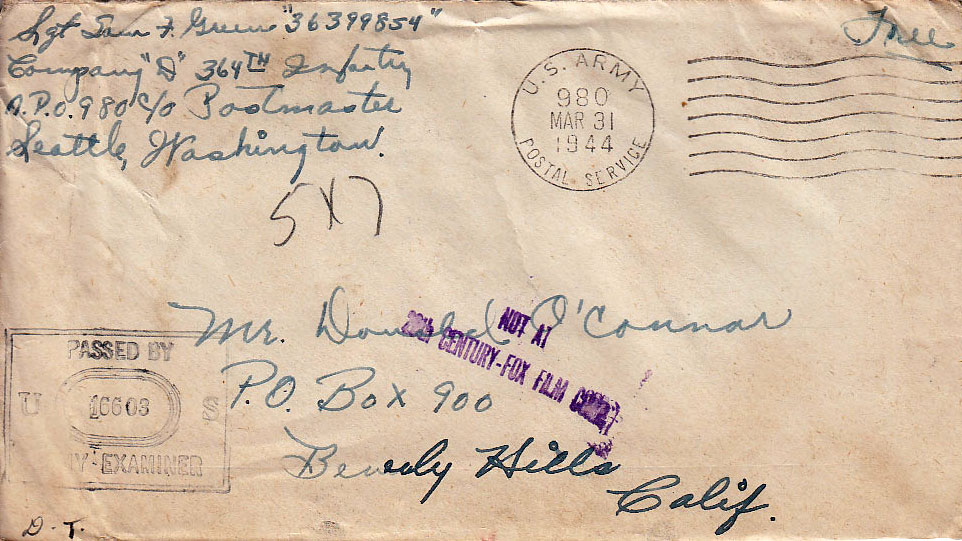 Sgt Sam F. Green "36399854"
Company "D" 364TH Infantry
A.P.O. 980 c/o Postmaster
Seattle, Washington.
Free
U.S. ARMY
980
MAR 31
1944
POSTAL SERVICE
5x7
Mr. Donald O'Connar
P.O. Box 900
Beverly Hills
Calif.
NOT AT
20th CENTURY-FOX FILM
PASSED BY
U 16603 S
Y EXAMINER
D.T.